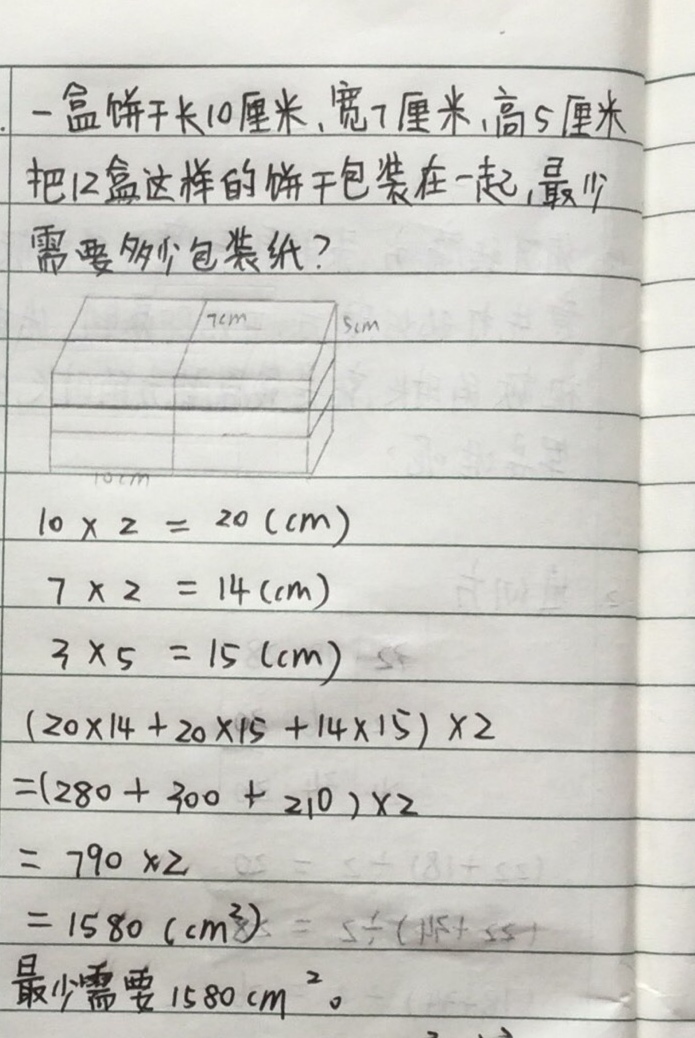 一盒饼干长10厘米、宽7厘米、高5厘米
把12盒这样的饼干包装在一起,最少
需要多少包装纸?
7cm
5cm
10cm
10 × 2 = 20 (cm)
7 × 2 = 14 (cm)
3 × 5 = 15 (cm)
(20×14 + 20×15 + 14×15) ×2
=(280 + 300 + 210) ×2
= 790 ×2
= 1580 (cm²)
最少需要1580cm²。